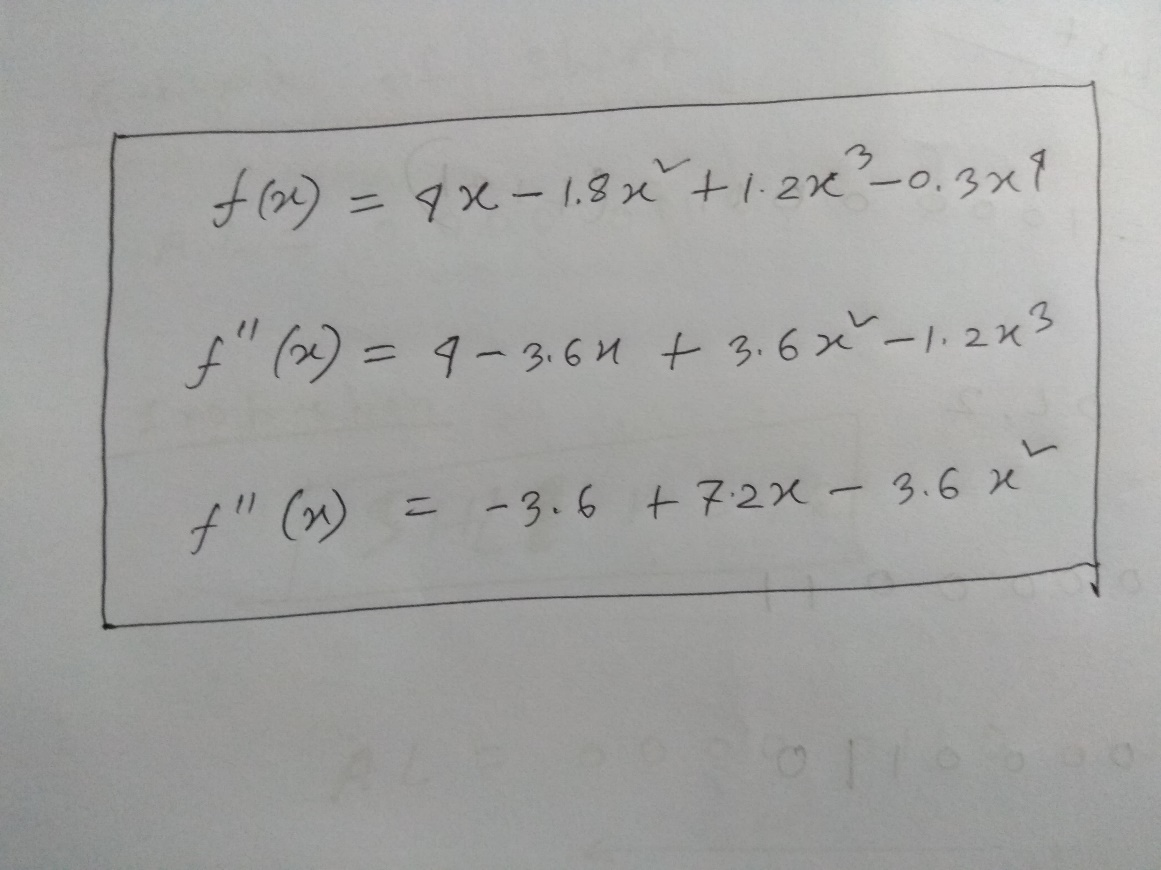 f(x) = 4x - 1.8x² + 1.2x³ - 0.3x⁴
f''(x) = 4 - 3.6x + 3.6x² - 1.2x³
f''(x) = -3.6 + 7.2x - 3.6x²